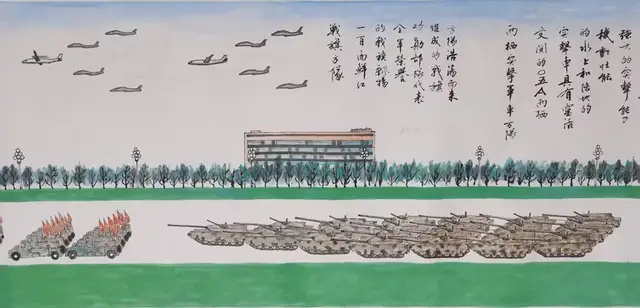 戰旗方隊
一百面鮮紅
的戰旗飄揚
全軍榮譽
功勛部隊代表
組成的戰旗
方隊浩蕩而來
兩栖突擊車方隊
的05A兩栖
突擊車具有靈活
的水上和陸地的
機動性能
強大的突擊能力